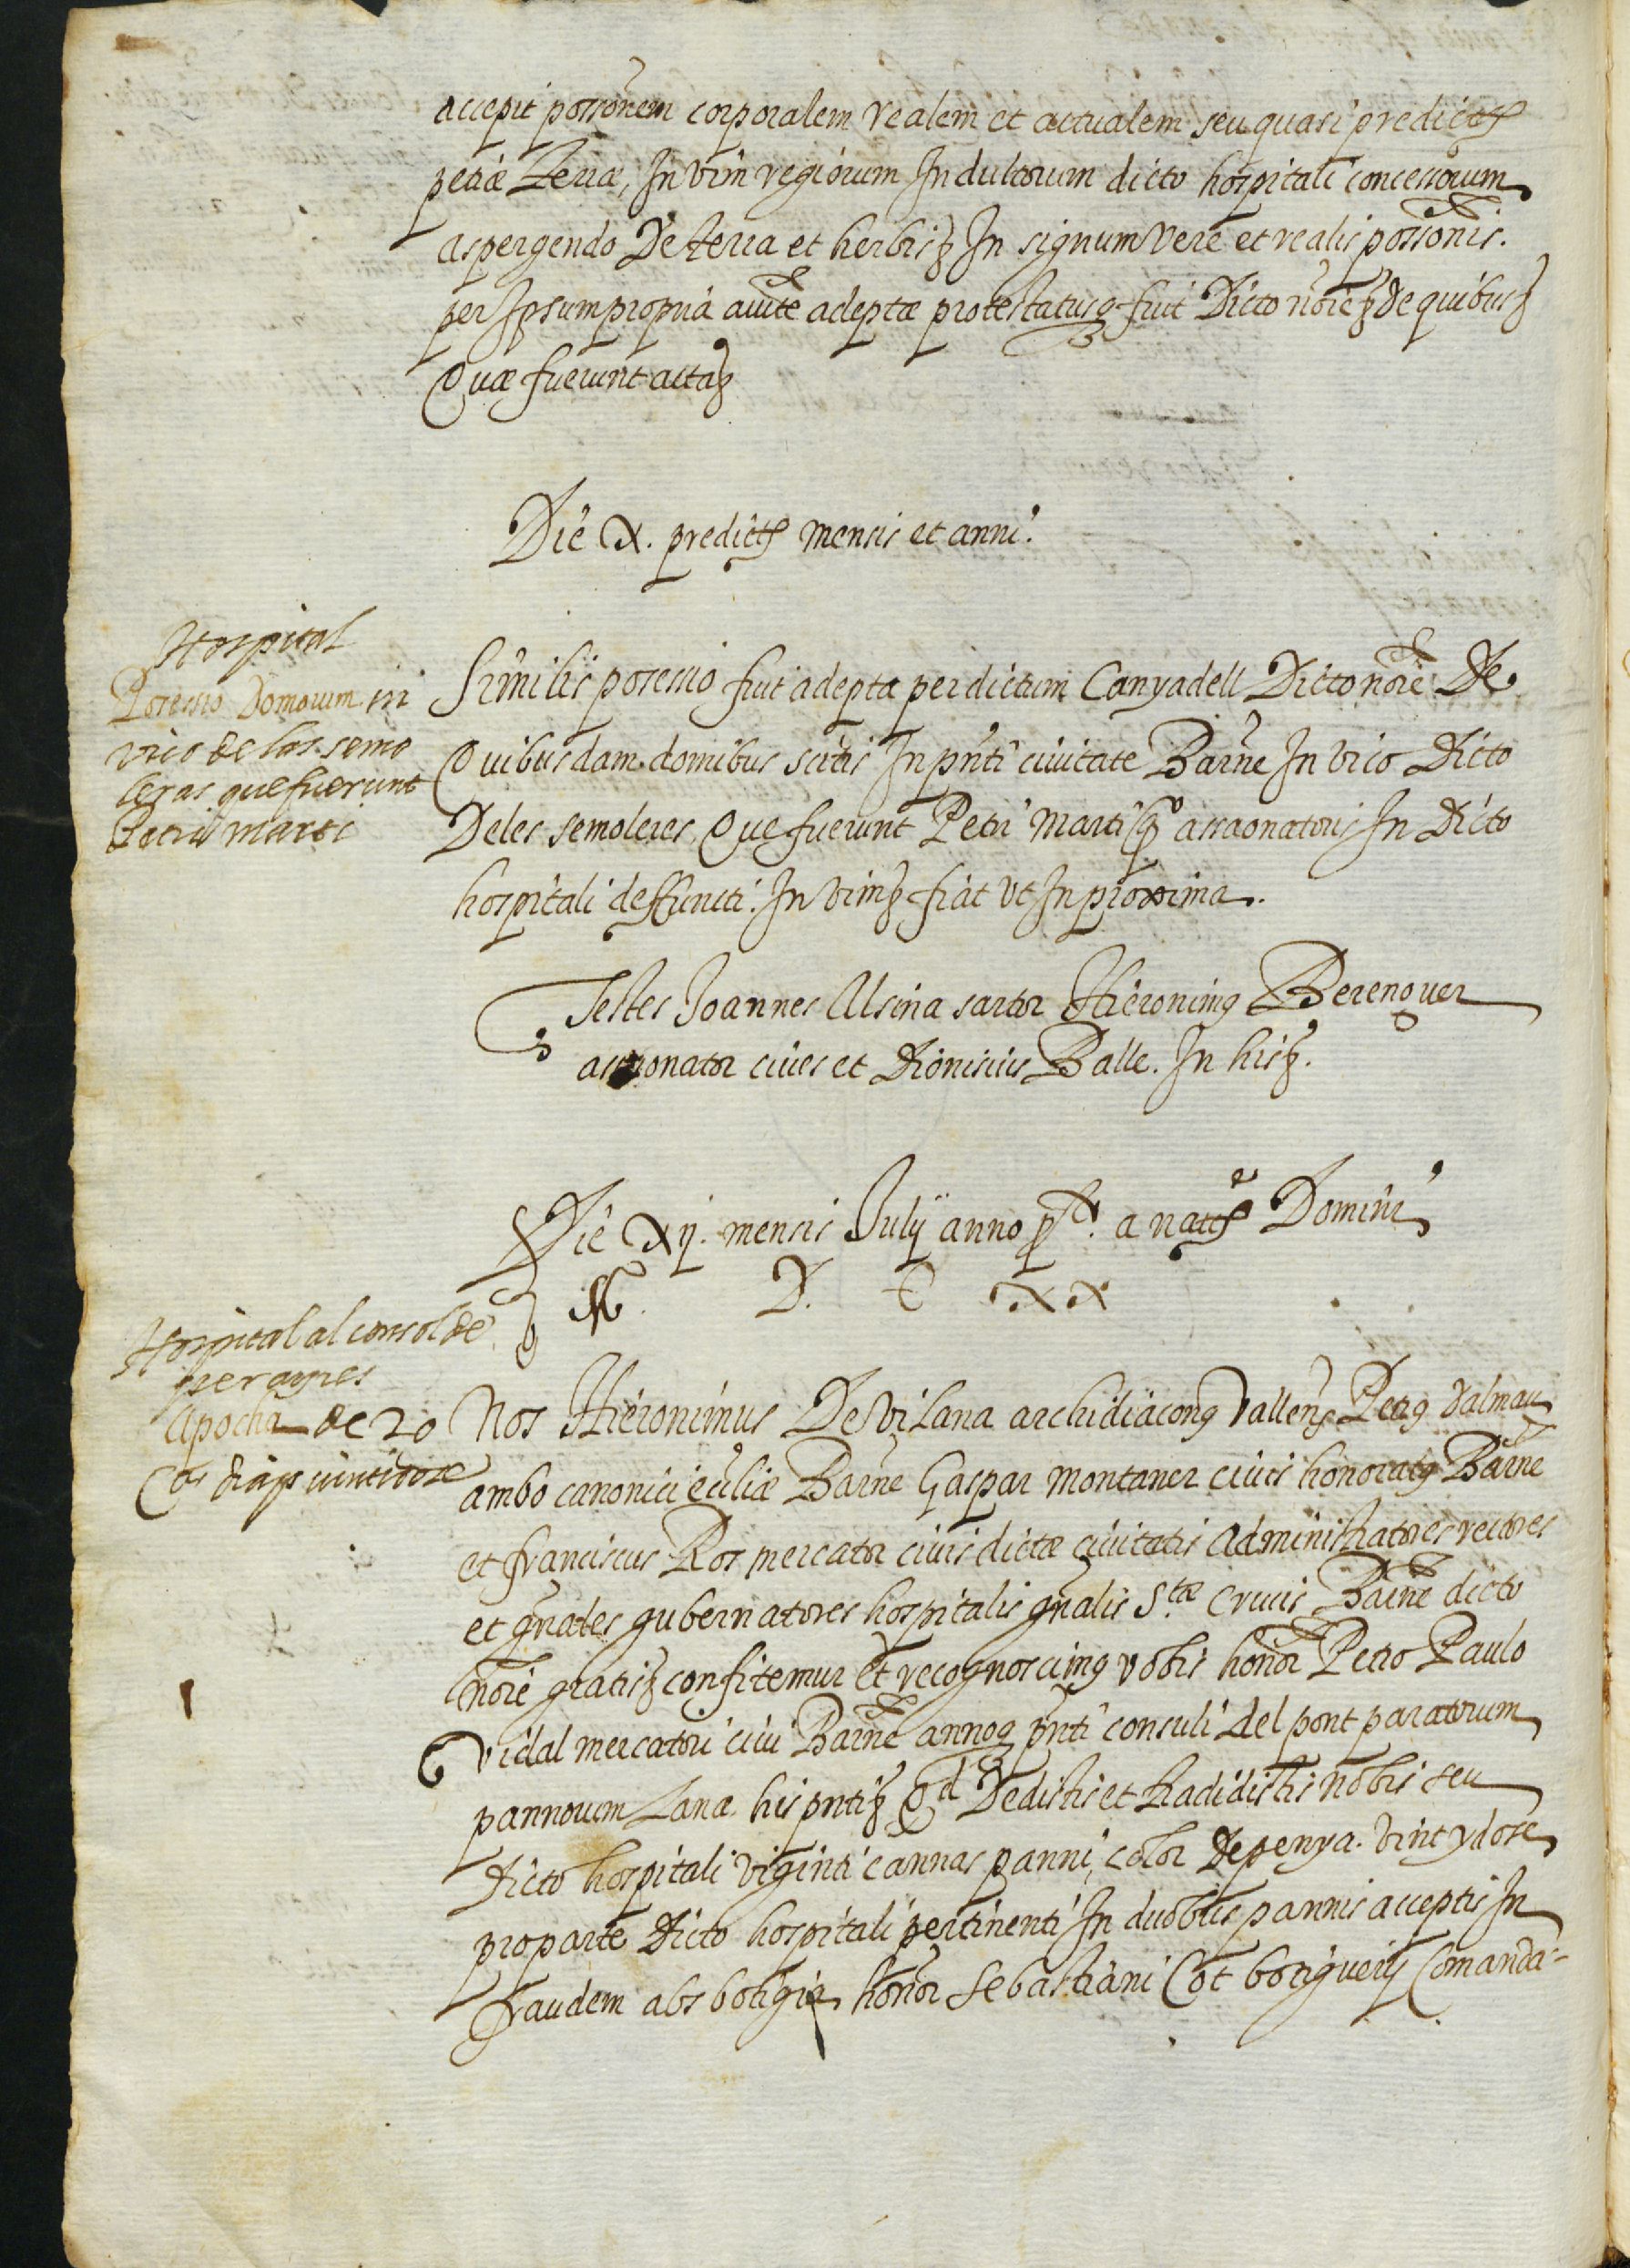 accepit possonem corporalem realem et actualem seu quasi predictę
petiæ Terræ, In vim regiorum Indultorum dicto hospitali concessorum
aspergendo De terra et herbis ꝫ In signum vere et realis possonis.
per Ipsum propria auctte adeptæ protestatusqꝫ fuit Dicto noie ꝫ De quibus ꝫ
Quæ fuerunt acta ꝫ
Die X. predictę mensis et anni.
Hospital
Possessio Domorum in
vico de las semo
leras que fuerunt
Petri marti
Similis posessio fuit adepta per dictum Canyadell Dicto noie De
Quibusdam domibus scitis In pnti ciuitate Barne In vico Dicto
Deles semoleres, Que fuerunt Petri Marti qº assaonatoris In Dicto
hospitali deffuncti. In vim ꝫ fiat vt In proxima.
Testes Joannes Alsina sartor Hieronimꝰ Berenguer
assaonator ciues et Dionisius Balle. In his ꝫ.
Die xij. mensis Julij anno pº. a natte Domini
M. D. C xx
Hospital al consol de
perayres
Apocha de 20
Cªs drap vintidose
Nos Hieronimus De Vilana archidiaconꝰ Vallensꝫ Petrꝰ Dalmau
ambo canonici eccliæ Barne Gaspar Montaner ciuis honoratꝰ Barne
et franciscus Ros mercator ciuis dictæ ciuitatis Administratores rectores
et gnales gubernatores hospitalis gnalis Stæ Crucis Barne dicto
noie gratis ꝫ confitemur et recognoscimꝰ vobis honor Petro Paulo
Vidal mercatori ciui Barne annoqꝫ pnti consuli del pont paratorum
pannorum Lanæ his pntis ꝫ Qd Dedistis et tradidistis nobis seu
dicto hospitali viginti cannas panni, color De penya. vint y dose
pro parte Dicto hospitali pertinenti In duobus pannis acceptis In
fraudem abs botigia honor Sebastiani Cot botiguerij Comanda-